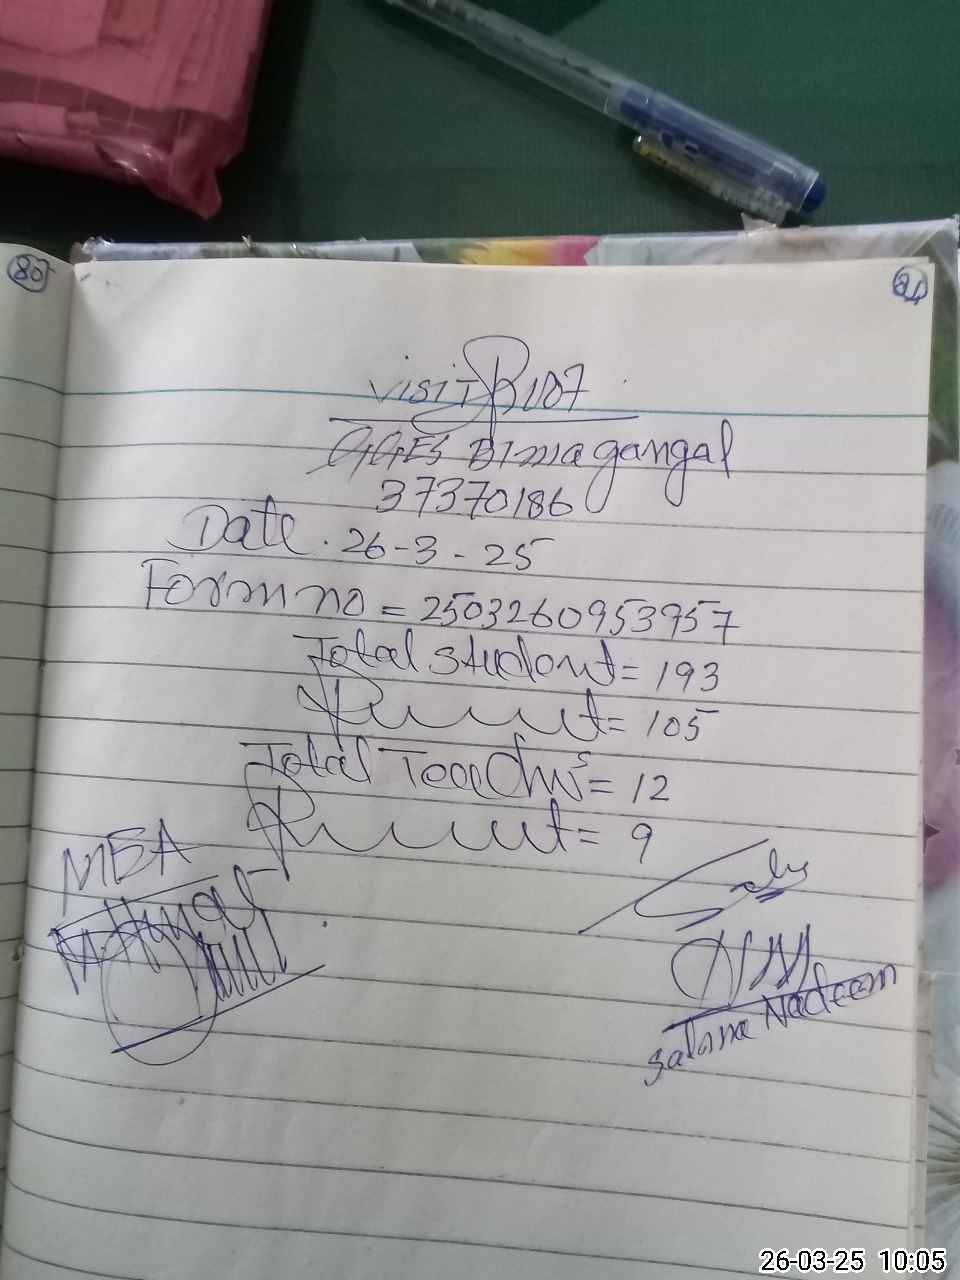 80
81
VISIT
GGES Bimagangal
37370186
Date . 26-3-25
Form no = 2503260953957
Total student = 193
Present = 105
Total Teachers = 12
Present = 9
MEA
Salma Nadeem
26-03-25 10:05